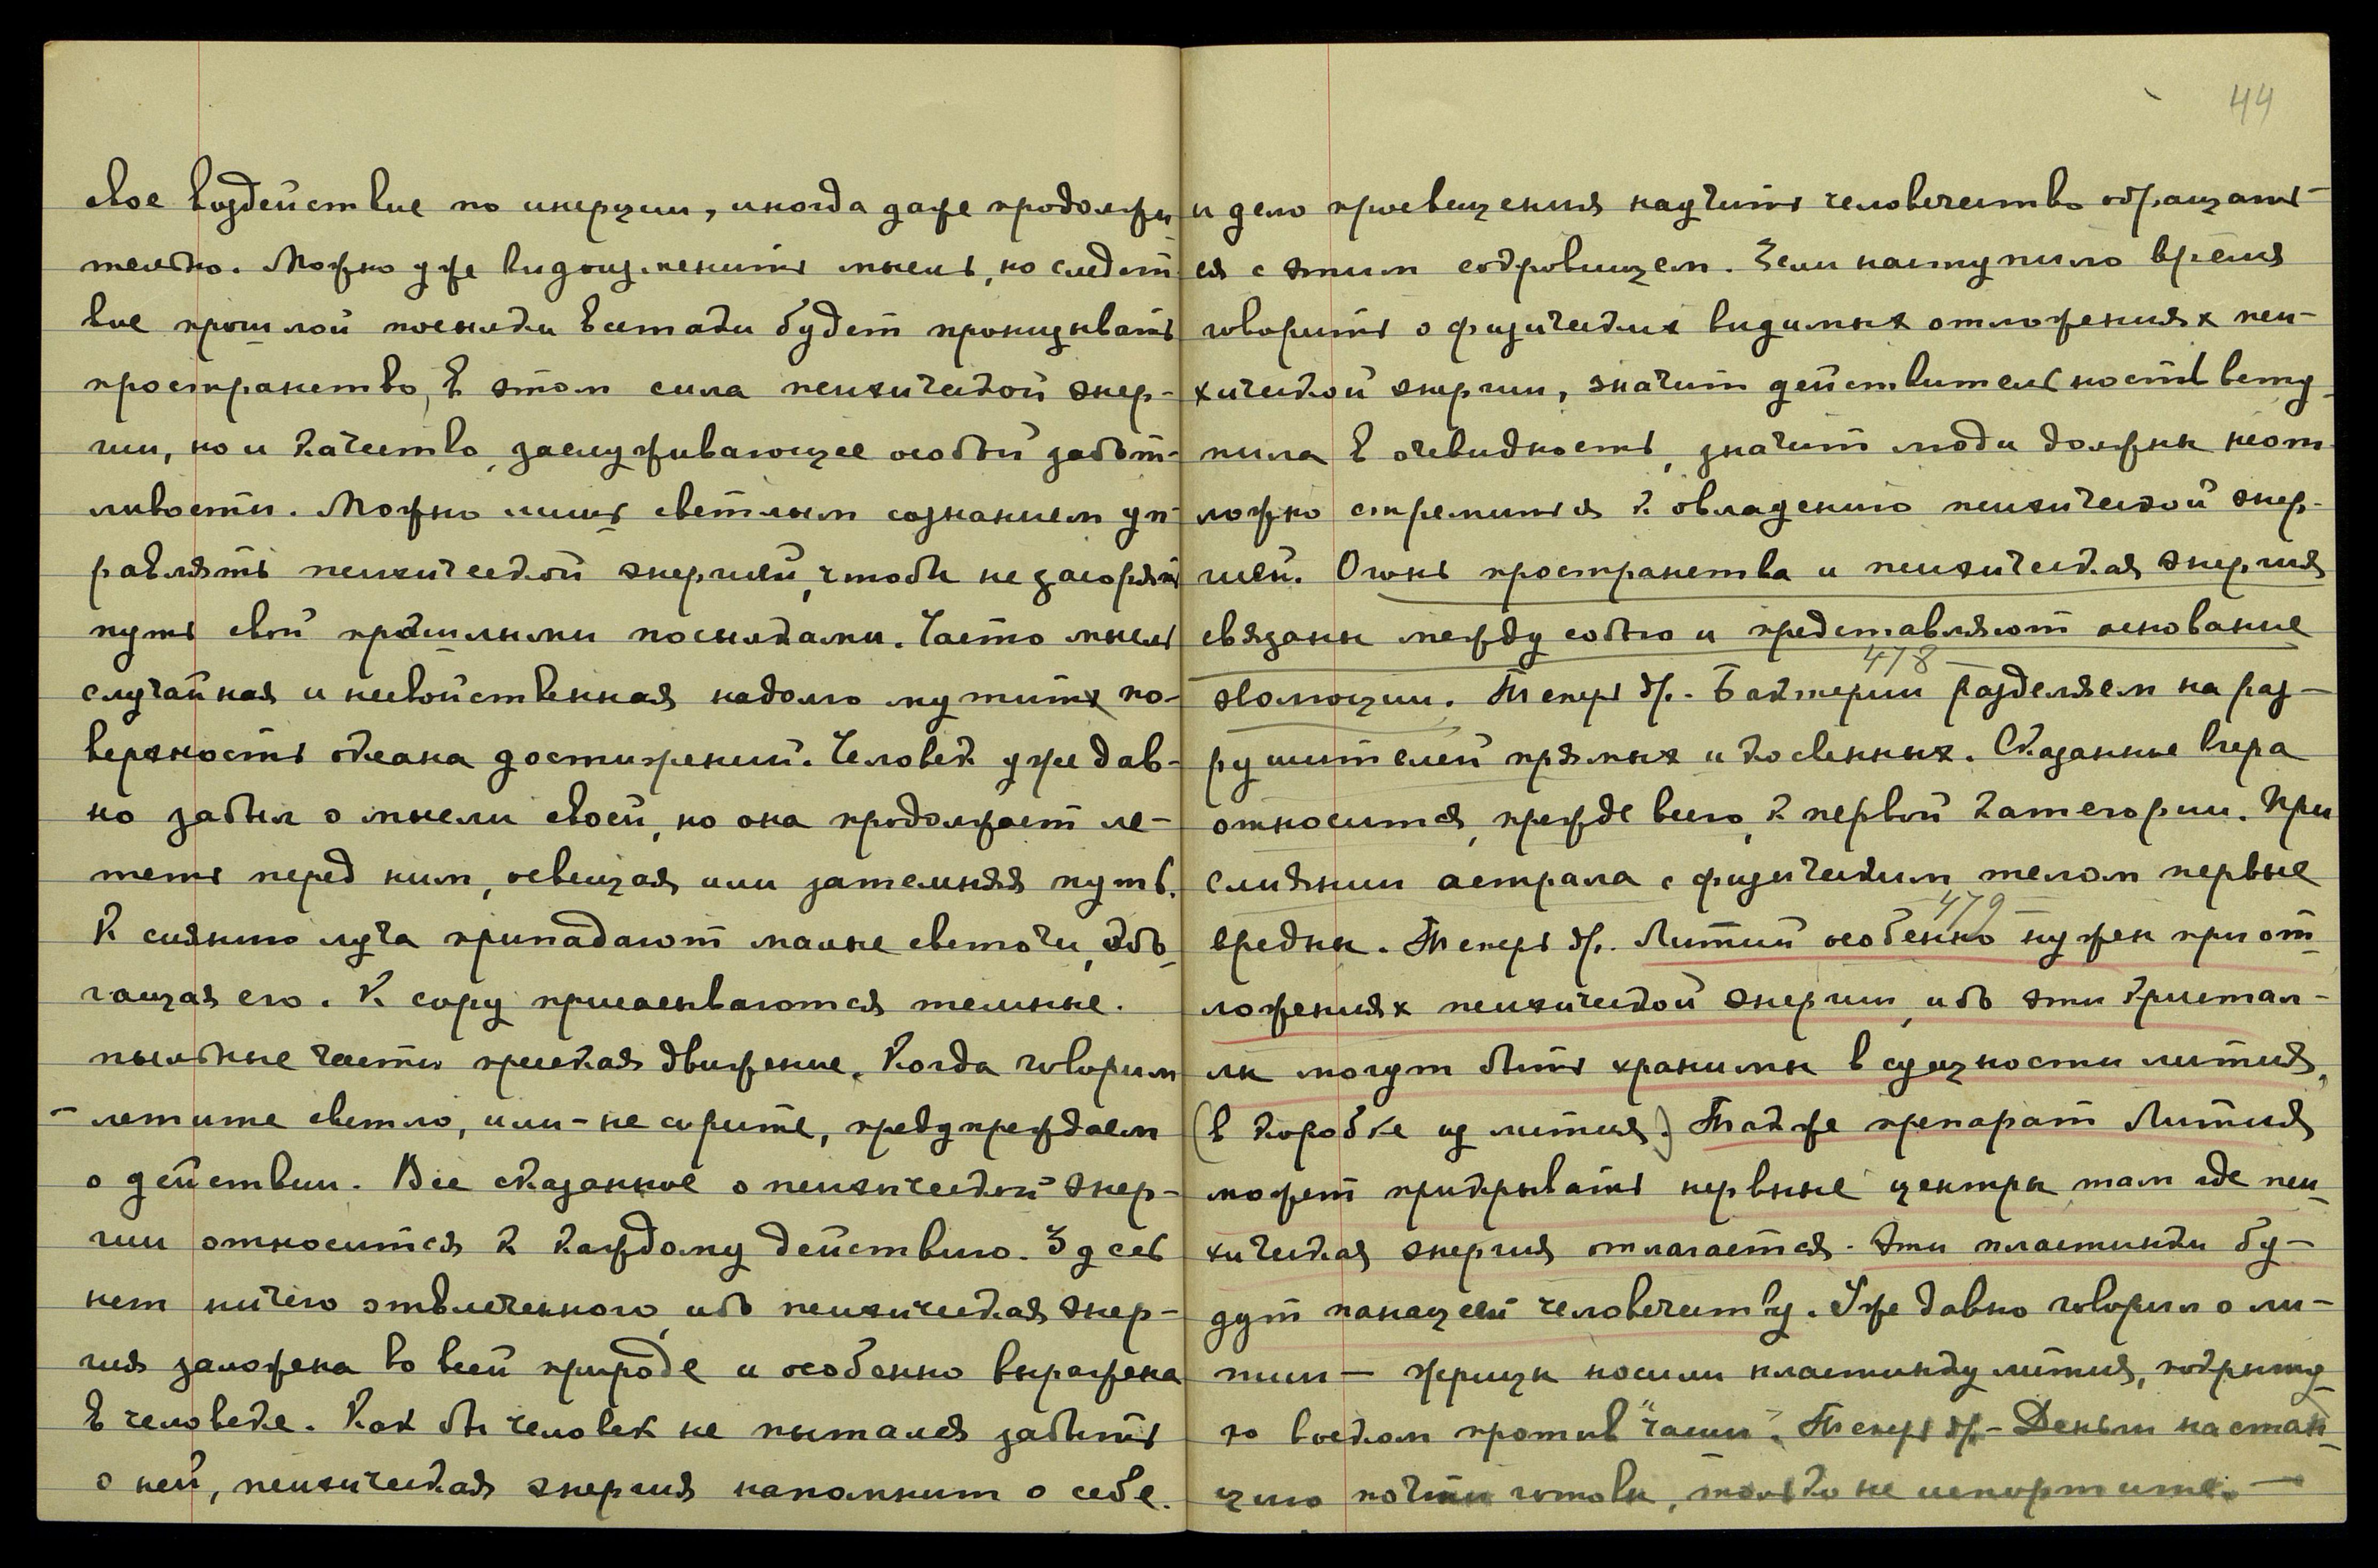 свое воздействие по инерции, иногда даже продолжи
тельно. Можно уже видоизменить мысль, но следст
вие прошлой посылки всетаки будет пронизывать
пространство, в этом сила психической энер-
гии, но и качество, заслуживающее особый забот-
ливости. Можно лишь светлым сознанием уп-
равлять психической энергией, чтобы не засорять
путь свой прошлыми посылками. Часто мысль
случайная и несвойственная надолго мутить по-
верхность океана достижений. Человек уже дав-
но забыл о мысли своей, но она продолжает ле-
теть перед ним, освещая или затемняя путь.
К сиянию луча припадают малые светочи, обо
гащая его. К сору присасываются темные.
пыльные части пресекая движение. Когда говорим
- летите светло, или - не сорите, предупреждаем
о действии. Все сказанное о психической энер-
гии относится к каждому действию. Здесь
нет ничего отвлеченного, ибо психическая энер-
гия заложена во всей природе и особенно выражена
в человеке. Как бы человек не пытался забыть
о ней, психическая энергия напомнит о себе.
44
и дело просвещения научить человечество обращать-
ся с этим сокровищем. Если наступило время
говорить о физических видимых отложениях пси-
хической энергии, значит действительность всту-
пила в очевидность, значит люди должны неот
ложно стремиться к овладению психической энер-
гией. Огонь пространства и психическая энергия
связаны между собою и представляют основание
478
эволюции. Теперь др. - Бактерии разделяем на раз-
рушителей прямых и косвенных. Сказанные вчера
относится, прежде всего, к первой категории. При
слиянии астрала с физическим телом первые
479
вредны. Теперь др. Литий особенно нужен при от-
ложениях психической энергии, ибо эти кристал-
лы могут быть хранимы в сущности лития,
(в коробке из лития.) Также препарат Лития
может прикрывать нервные центры там где пси-
хическая энергия отлагается. Эти пластинки бу-
дут панацеей человечеству. Уже давно говорил о ли-
тии - жрицы носили пластинку лития, покрыту
ю воском против "чаши". Теперь др. - Деньги на стан-
цию почти готовы, только не испортите. -